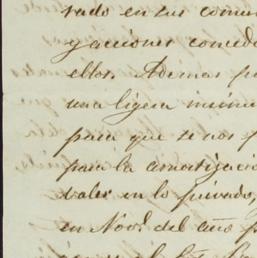 rado en sus comun
y acciones concede
ellos. Ademas p
una ligera insinu
para que se nos p
para la amortizacio
vales en lo privado,
en Novb. del año p